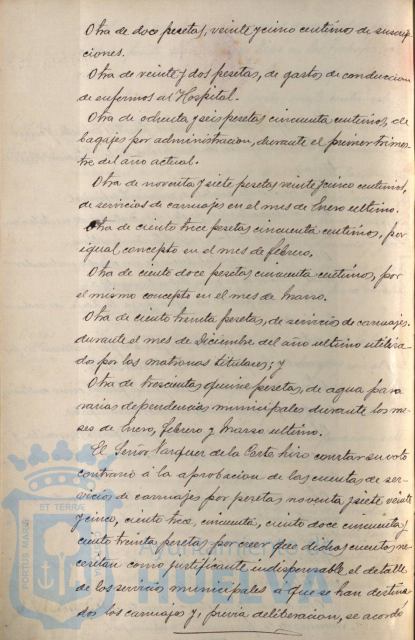 Otra de doce pesetas, veinte y cinco centimos de suscrip
ciones.
Otra de veinte y dos pesetas, de gastos de conduccion
de enfermos al Hospital.
Otra de ochenta y seis pesetas cincuenta centimos, de
bagajes por administracion, durante el primer trimes-
tre del año actual.
Otra de noventa y siete pesetas veinte y cinco centimos,
de servicios de carruajes en el mes de Enero ultimo.
Otra de ciento trece pesetas cincuenta centimos, por
igual concepto en el mes de febrero.
Otra de ciento doce pesetas cincuenta centimos, por
el mismo concepto en el mes de Marzo.
Otra de ciento treinta pesetas, de servicios de carruajes
durante el mes de Diciembre del año ultimo utiliza-
dos por las matronas titulares; y
Otra de trescientas quince pesetas, de agua para
varias dependencias municipales durante los me-
ses de Enero, febrero y Marzo ultimo.
El Señor Vazquez de la Corte hizo constar su voto
contrario á la aprobacion de las cuentas de ser-
vicios de carruajes por pesetas noventa y siete veinte
y cinco, ciento trece, cincuenta, ciento doce cincuenta y
ciento treinta pesetas por creer que dichas cuentas ne-
cesitan como justificante indispensable el detalle
de los servicios municipales á que se han destina
do los carruajes y, previa deliberacion, se acordó
PORTUS MARIS
ET TERRAE
Ayuntamiento de
HUELVA